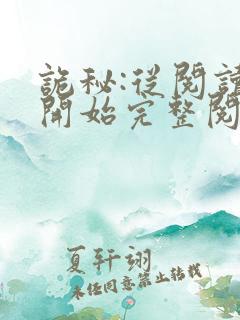 詭秘:從閱讀
開始完整閱
夏轩翊
未任同意禁止转载